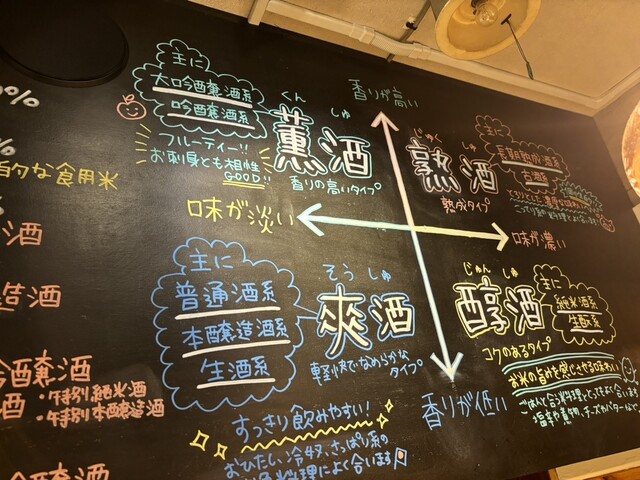 香りが高い
主に
大吟醸酒系
吟醸酒系
フルーティー!!
お刺身とも相性
GOOD!!
くん しゅ
薫酒
香りの高いタイプ
主に
長期熟成酒系
古酒系
じゅく しゅ
熟酒
熟成タイプ
味が淡い
味が濃い
主に
普通酒系
本醸造酒系
生酒系
そう しゅ
爽酒
軽快でなめらかな
タイプ
すっきり飲みやすい!
おひたし、冷奴、さっぱり系の
料理によく合います
じゅん しゅ
醇酒
コクのあるタイプ
主に
純米酒系
生酛系
お米の旨味を感じさせる味わい
ごはんと合う料理ととってもよく合います
塩辛や煮物、チーズやバター
香りが低い
0%
%
的な食用米
酒
造酒
吟醸酒
酒
・特別純米酒
・特別本醸造酒
吟醸酒